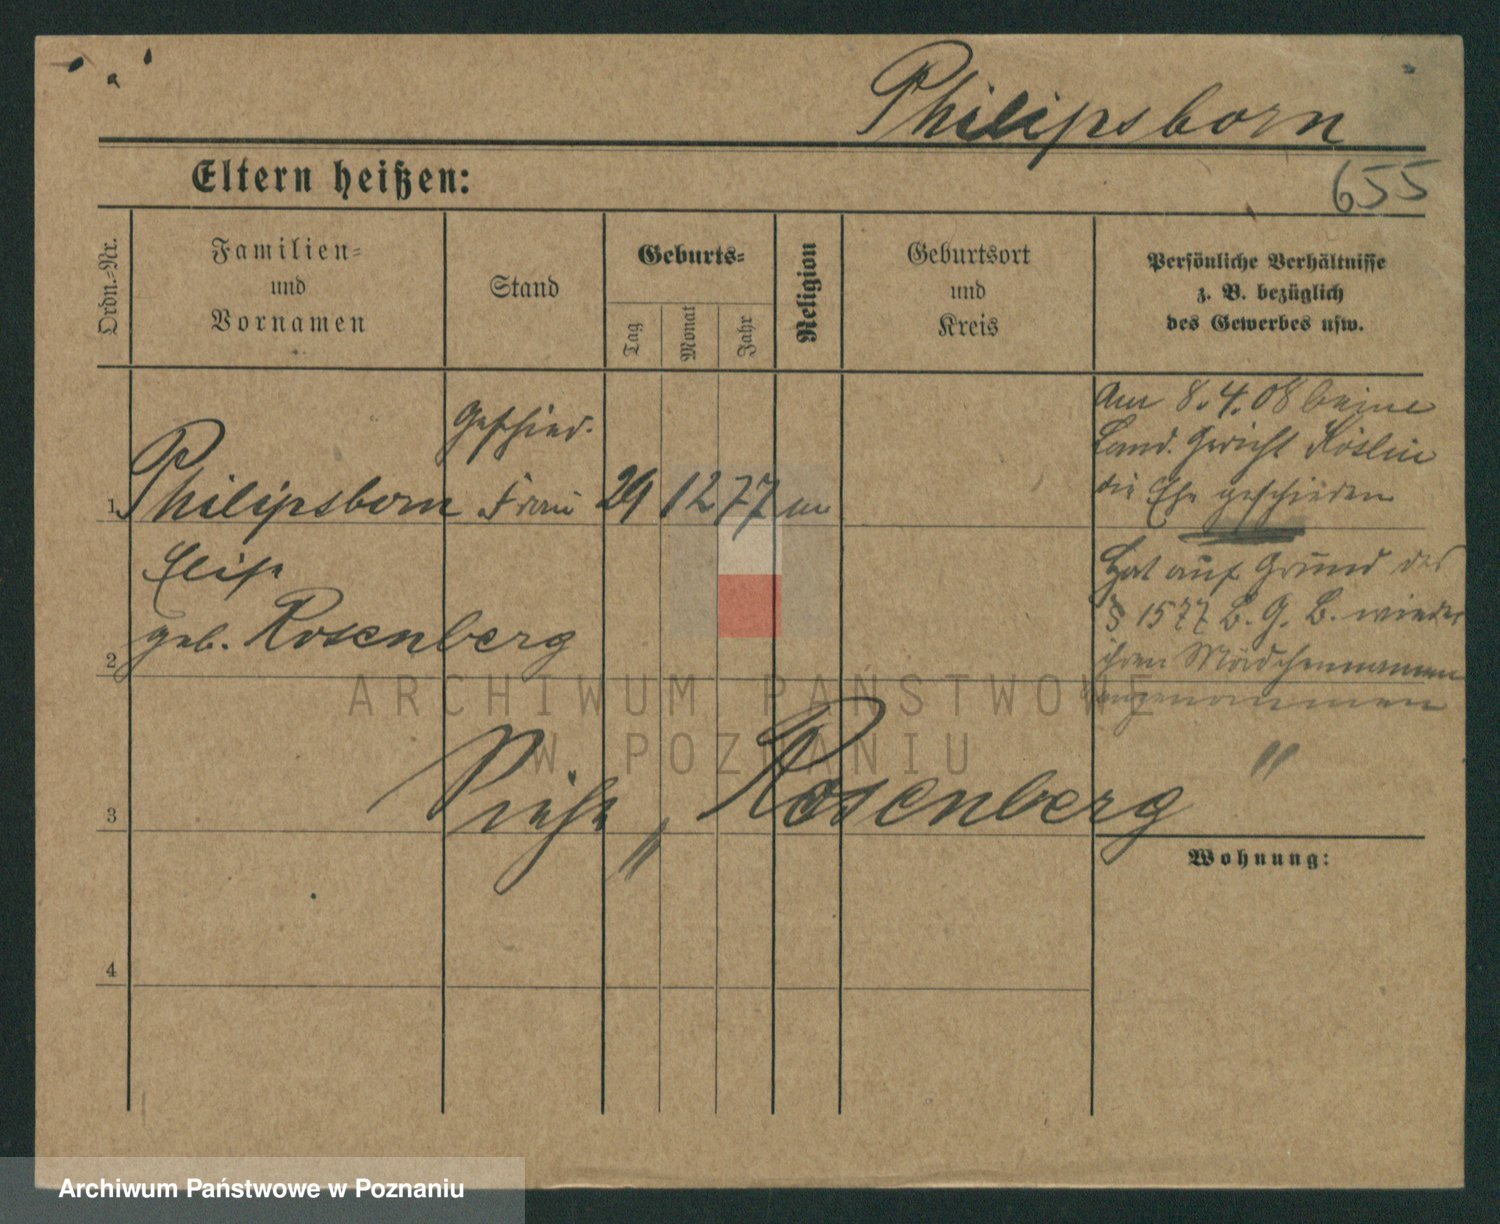 Philipsborn
655
Eltern heißen:
Ordn.-Nr.
Familien-
und
Vornamen
Stand
Geburts-
Tag
Monat
Jahr
Religion
Geburtsort
und
Kreis
Persönliche Verhältnisse
z. B. bezüglich
des Gewerbes usw.
1
Philipsborn
geschied.
Frau
29
12
77
m
Am 8.4.08 beim
Land. Gericht Köslin
die Ehe geschieden
Elise
geb. Rosenberg
Hat auf Grund des
§ 1577 B. G. B. wieder
ihren Mädchennamen
angenommen
2
Siehe „Rosenberg"
3
Wohnung:
4
ARCHIWUM PAŃSTWOWE
W POZNANIU
Archiwum Państwowe w Poznaniu